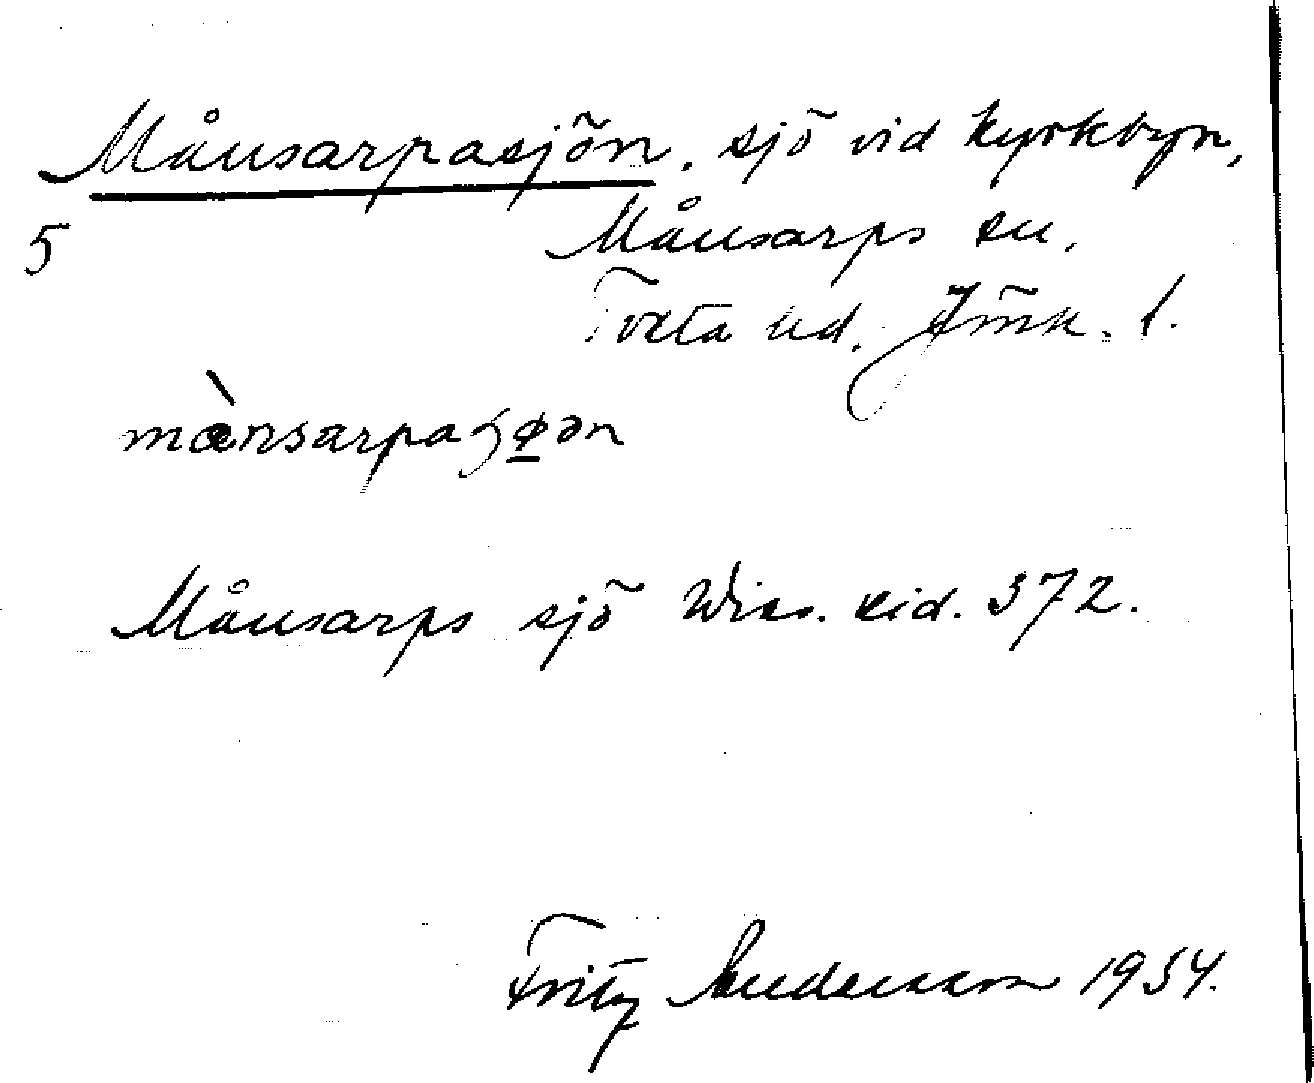 Månsarpasjön, sjö vid kyrkbyn,
5
Månsarps sn.
Tveta hd. Jönk. l.
Månsarps sjö Wies. sid. 372.
Fritz Andersson 1934.